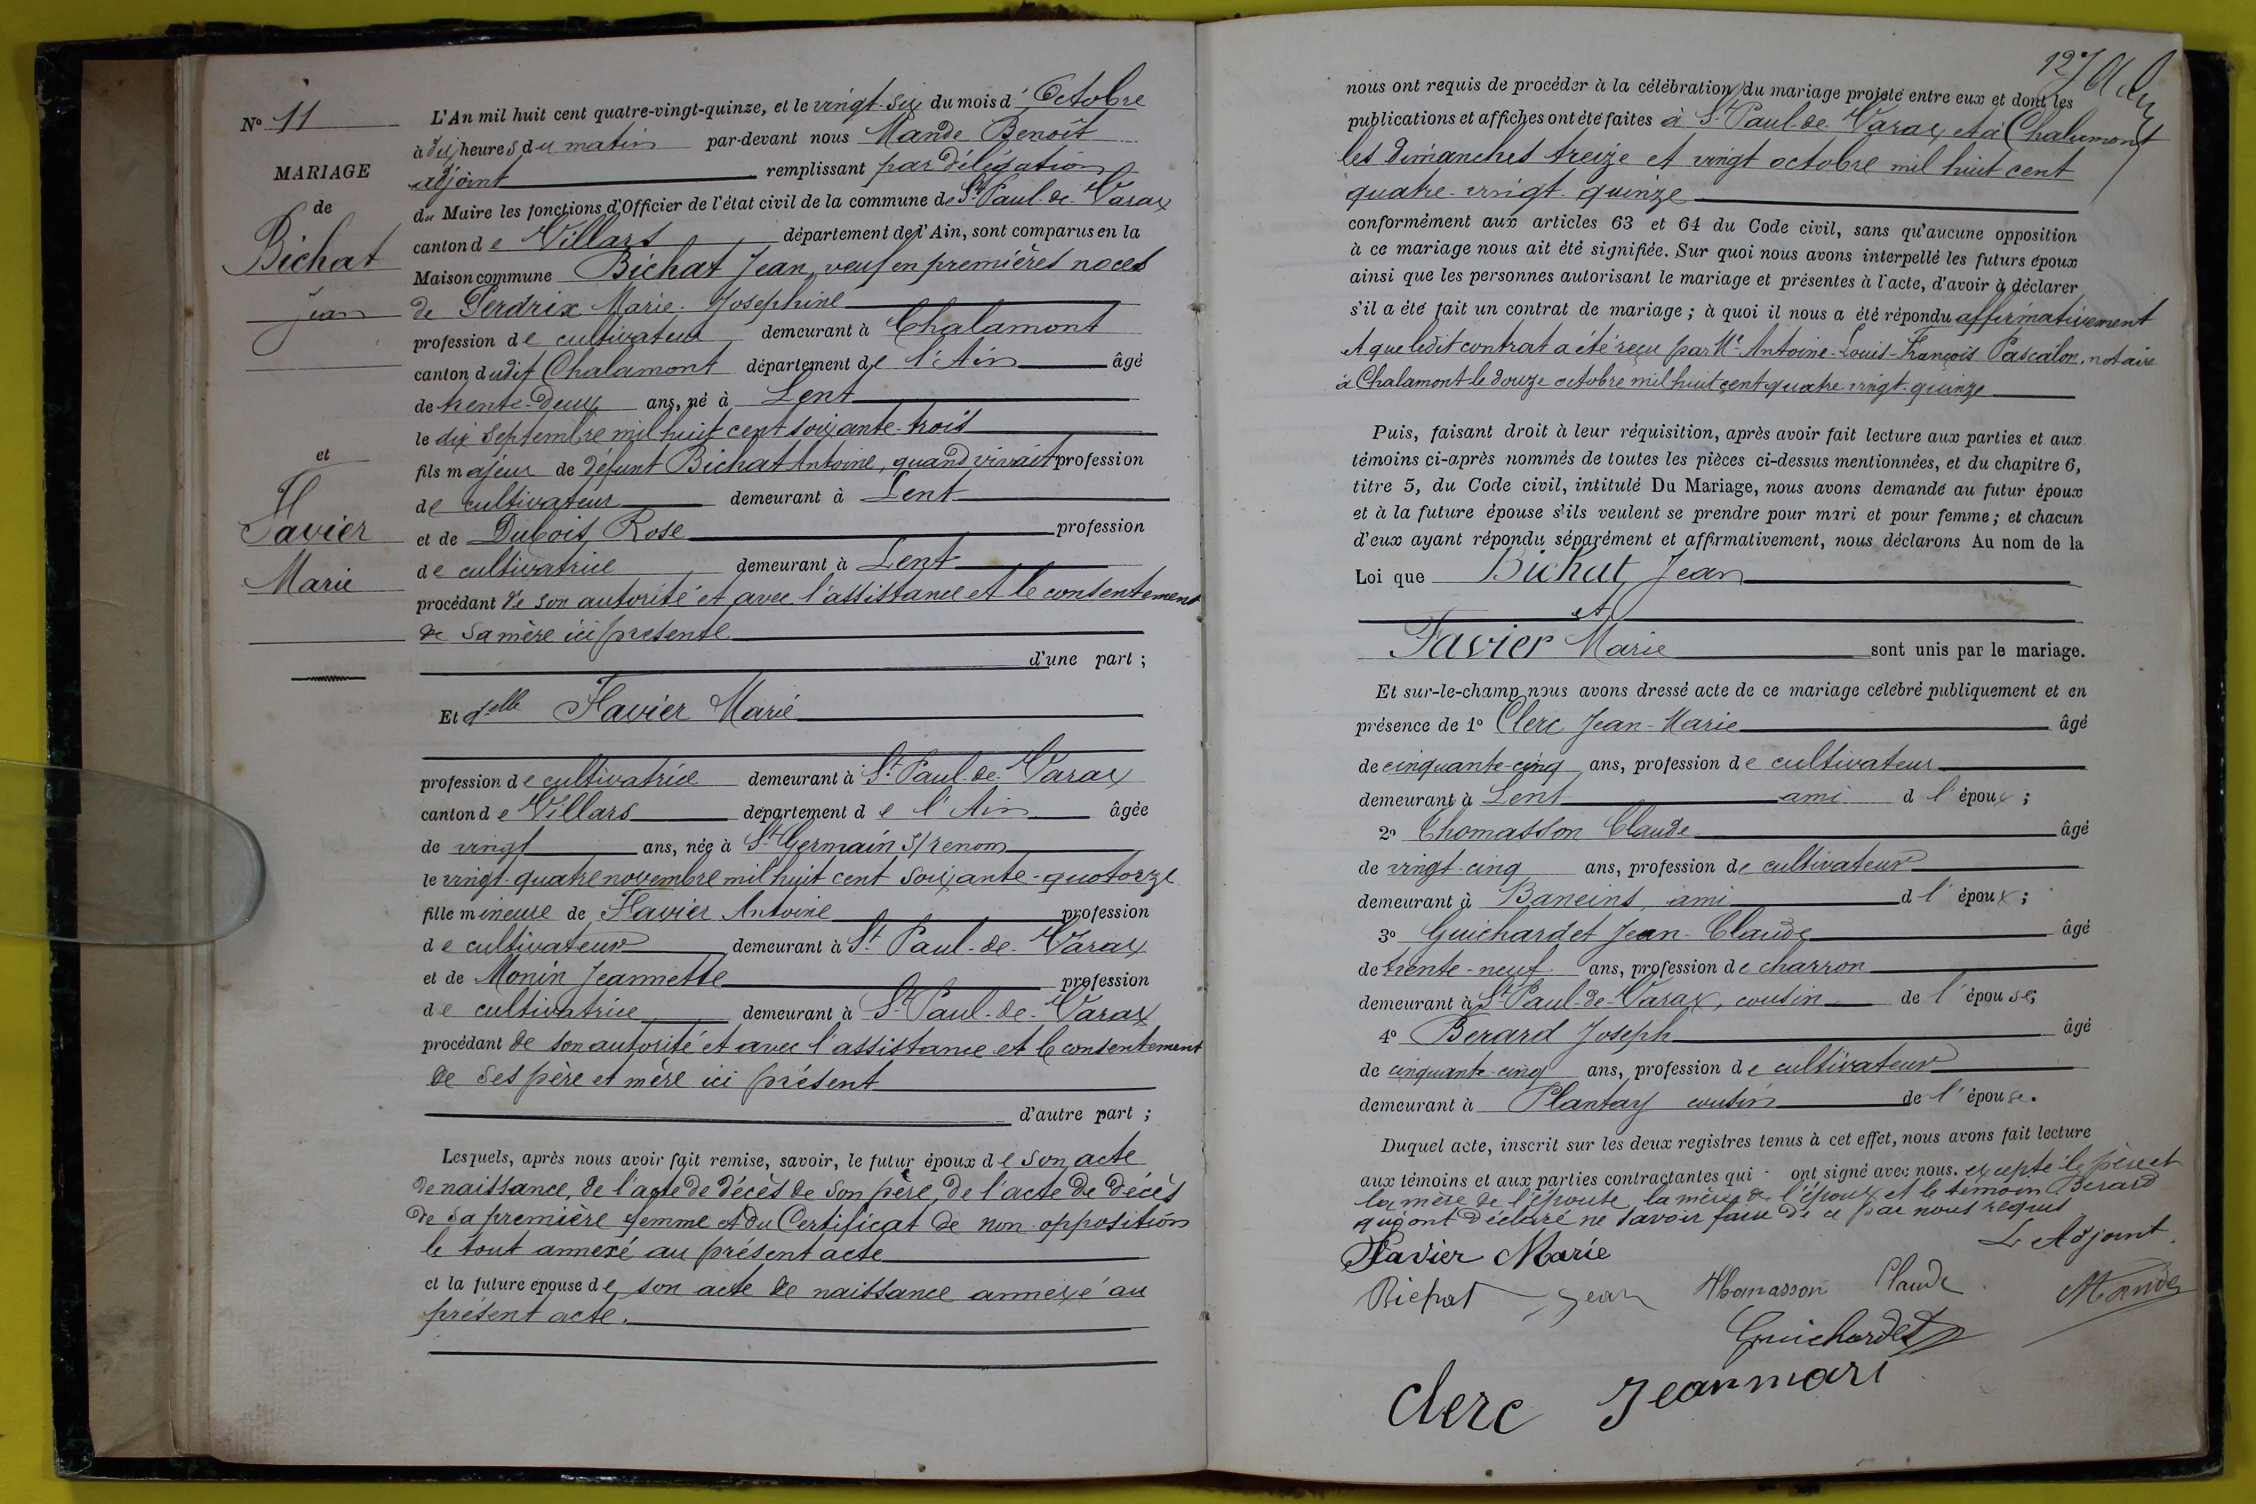 Nº 11
MARIAGE
de
Bichat
Jean
et
Favier
Marie
L'An mil huit cent quatre-vingt-quinze, et le vingt-six du mois d'Octobre
à dix heures du matin par-devant nous Mande Benoît
adjoint remplissant par délégation
du Maire les fonctions d'Officier de l'état civil de la commune de St Paul-de-Varax
canton de Villars département de l'Ain, sont comparus en la
Maison commune Bichat Jean, veuf en premières noces
de Perdrix Marie-Josephine
profession de cultivateur demeurant à Chalamont
canton dudit Chalamont département de l'Ain âgé
de trente-deux ans, né à Lent
le dix Septembre mil huit cent soixante-trois
fils majeur de défunt Bichat Antoine, quand vivait profession
de cultivateur demeurant à Lent
et de Dubois Rose profession
de cultivatrice demeurant à Lent
procédant de son autorité et avec l'assistance et le consentement
de sa mère ici présente
d'une part ;
Et delle Favier Marie
profession de cultivatrice demeurant à St Paul-de-Varax
canton de Villars département de l'Ain âgée
de vingt ans, née à St Germain s/renom
le vingt-quatre novembre mil huit cent soixante-quotorze
fille mineure de Favier Antoine profession
de cultivateur demeurant à St Paul-de-Varax
et de Monin Jeannette profession
de cultivatrice demeurant à St Paul-de-Varax
procédant de son autorité et avec l'assistance et le consentement
de ses père et mère ici présent
d'autre part ;
Lesquels, après nous avoir fait remise, savoir, le futur époux de son acte
de naissance, de l'acte de décès de son père, de l'acte de décès
de sa première femme et du Certificat de non opposition
le tout annexé au présent acte
et la future epouse de son acte de naissance annexé au
présent acte.
127
nous ont requis de procéder à la célébration du mariage projeté entre eux et dont les
publications et affiches ont été faites à St Paul-de-Varax et à Chalamont
les dimanches treize et vingt octobre mil huit cent
quatre-vingt-quinze
conformément aux articles 63 et 64 du Code civil, sans qu'aucune opposition
à ce mariage nous ait été signifiée. Sur quoi nous avons interpellé les futurs époux
ainsi que les personnes autorisant le mariage et présentes à l'acte, d'avoir à déclarer
s'il a été fait un contrat de mariage ; à quoi il nous a été répondu affirmativement
et que ledit contrat a été reçu par Me Antoine-Louis-François Pascalon, notaire
à Chalamont le douze octobre mil huit cent quatre vingt-quinze
Puis, faisant droit à leur réquisition, après avoir fait lecture aux parties et aux
témoins ci-après nommés de toutes les pièces ci-dessus mentionnées, et du chapitre 6,
titre 5, du Code civil, intitulé Du Mariage, nous avons demandé au futur époux
et à la future épouse s'ils veulent se prendre pour mari et pour femme ; et chacun
d'eux ayant répondu séparément et affirmativement, nous déclarons Au nom de la
Loi que Bichat Jean
et
Favier Marie sont unis par le mariage.
Et sur-le-champ nous avons dressé acte de ce mariage célébré publiquement et en
présence de 1º Clerc Jean-Marie âgé
de cinquante-cinq ans, profession de cultivateur
demeurant à Lent ami d l'époux ;
2º Thomasson Claude âgé
de vingt-cinq ans, profession de cultivateur
demeurant à Baneins, ami d l'époux ;
3º Guichardet Jean-Claude âgé
de trente-neuf ans, profession de charron
demeurant à St Paul-de-Varax, cousin de l'épouse;
4º Berard Joseph âgé
de cinquante-cinq ans, profession de cultivateur
demeurant à Plantay cousin de l'épouse.
Duquel acte, inscrit sur les deux registres tenus à cet effet, nous avons fait lecture
aux témoins et aux parties contractantes qui ont signé avec nous. excepté le père et
la mère de l'épouse, la mère de l'époux et le témoin Berard
qui ont déclaré ne savoir faire de ce par nous requis
L'Adjoint.
Favier Marie
Bichat Jean Thomasson Claude Mande
Guichardet
Clerc Jeanmari